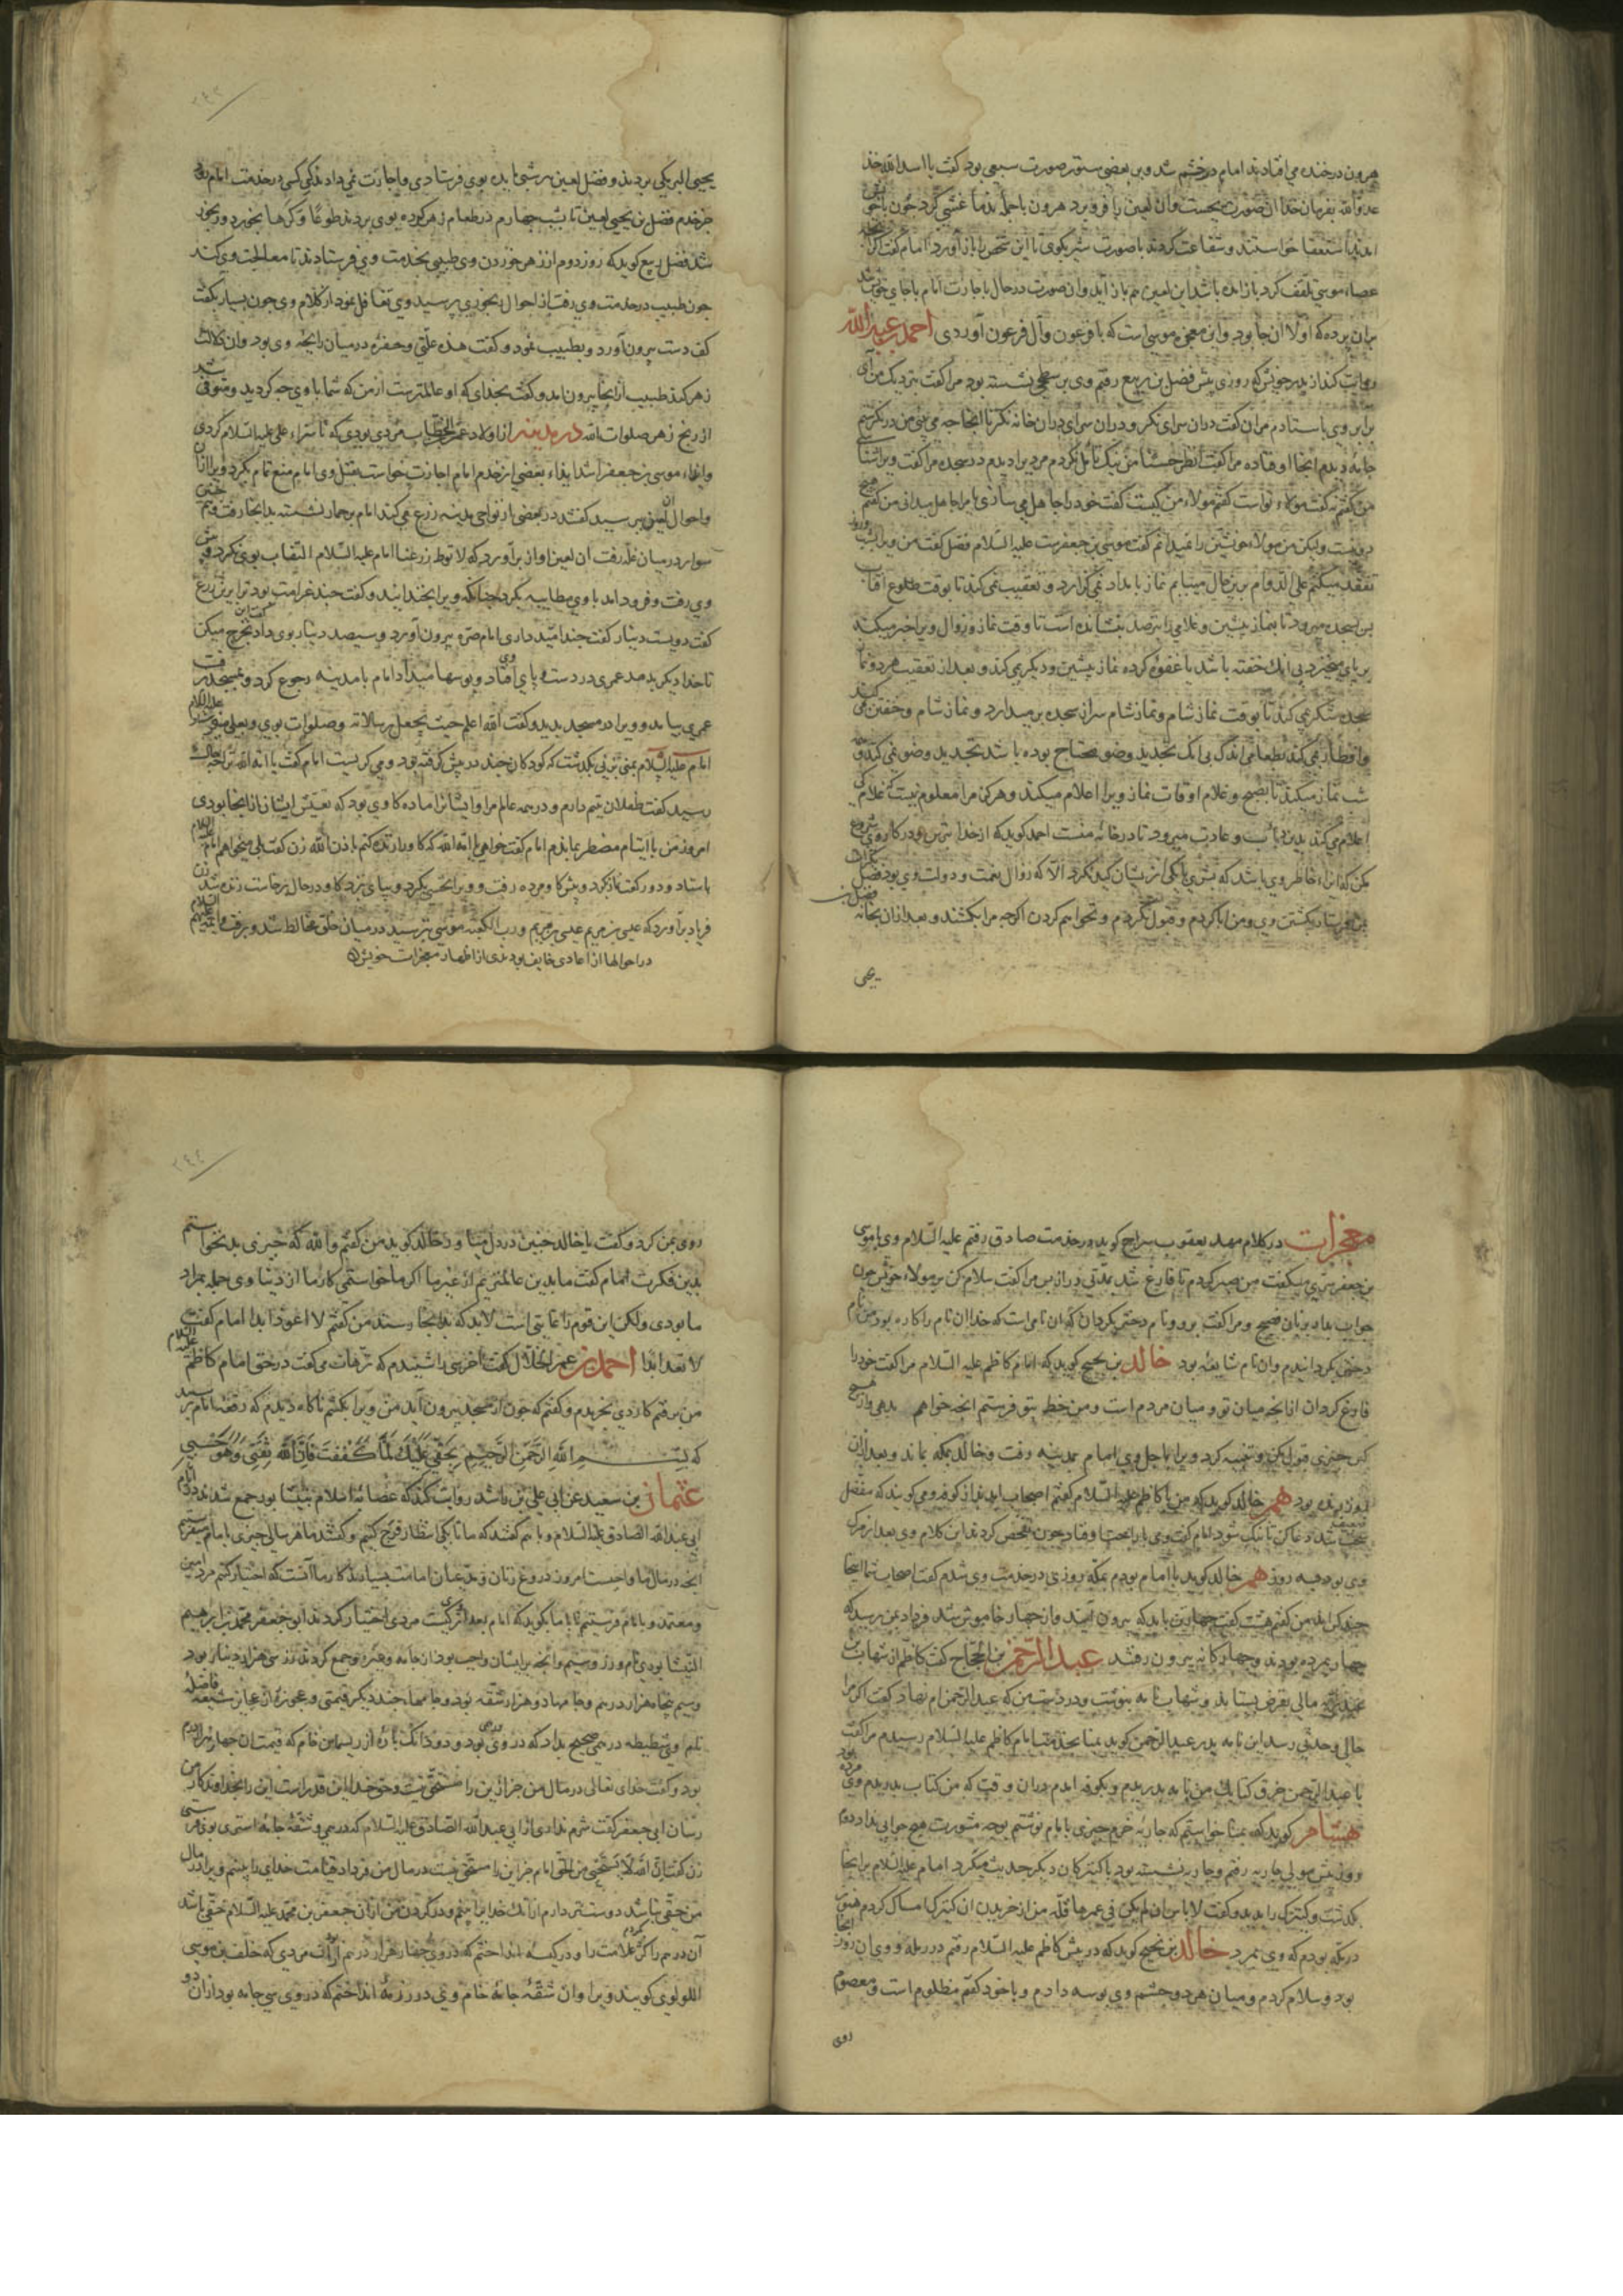 هرون در خنده می افتادند امام در خشم شد و بر بعضی ستور صورت سبعی بود گفت یا اسد الله خذ
عدو الله بفرمان خدا آن صورت بجست و آن لعین را فرو برد هرون با جمله ندما غشی کرد چون باخوش
امدند استعفا خواستند و شفاعت کردند با صورت شیر بکوی تا این شخص را باز آورد امام گفت اگر
عصاء موسی تلقف کرد باز اید باشد این لعین هم باز اید و آن صورت در حال باجازت امام باجای خویش شد
بران پرده که اولا آن جا بود و این معجزه موسی است که با فرعون و آل فرعون آوردی احمد بن عبد الله
روایت کند از پدر خویش که روزی پیش فضل بن ربیع رفتم وی بر سطحی نشسته بود مرا گفت نزدیک من آی
برابر وی باستادم مرا گفت در ان سرای نکر و در ان سرای در ان خانه نکر تا انجا چه می بینی من در نکریستم
جامهٔ دیدم انجا اوفتاده مرا گفت انظر حسنا من نیک تامل کردم مردی را دیدم در سجده مرا گفت ویرا شناسی
من گفتم نه گفت مولاء تو است گفتم مولاء من کیست گفت خود را جاهل می سازی یا مرا جاهل میدانی من گفتم
ولیکن من مولاء خویشتن را نمیدانم گفت موسی بن جعفرست علیه السلام فضل گفت من ویرا شب و روز
تفقد میکنم علی الدوام برین حال مییابم نماز بامداد می گزارد و تعقیب می کند تا بوقت طلوع افتاب
پس بسجده میرود تا بنماز پیشین و غلامی را بترصد بنشانده است تا وقت نماز و زوال ویرا خبر میکند
بر پای میخیزد بی انک خفته باشد یا غفوهٔ کرده نماز پیشین و دیکری کند و بعد از تعقیب هر دو نماز
سجده شکر می کند تا بوقت نماز شام و نماز شام سر از سجده بر میدارد و نماز شام و خفتن می کند
و افطار می کند بطعامی اندک بی انک تجدید وضو محتاج بوده باشد تجدید وضو می کند و
شب نماز میکند تا بصبح و غلام اوقات نماز ویرا اعلام میکند و هرکز مرا معلوم نیست که غلام کی
اعلام می کند بدین داب و عادت میرود تا در خانه منست احمد کوید که از خدا بترس و در کار وی شروع
مکن که ایذاء خاطر وی باشد که بدی با یکی از ایشان کسی نکرد الا که زوال نعمت و دولت وی بود فضل گفت
بمن فرستاد بکشتن وی و من ابا کردم و قبول نکردم و نخواهم کردن اکرچه مرا بکشند و بعد از ان بخانه فضل بن
یحیی
۲۴۳
یحیی البرمکی بردند و فضل لعین هر شب مایده بوی فرستادی و اجازت نمی دادند که کسی در خدمت امام رود
جز خدم فضل بن یحیی لعین تا بشب چهارم در طعام زهر کرده بوی بردند طوعًا و کرهًا بخورد و رنجور
شد فضل ربیع کوید که روز دوم از زهر خوردن وی طبیبی بخدمت وی فرستادند تا معالجت وی کند
چون طبیب در خدمت وی رفت از احوال رنجوری پرسید وی تغافل نمود از کلام وی چون بسیار بگفت
کف دست بیرون آورد و بطبیب نمود و گفت هذه علتی و حفرهٔ در میان راحهٔ وی بود و آن دلالت
زهر کند طبیب از انجا بیرون امد و گفت بخدای که او عالمترست از من که شما با وی چه کردید و متوفی شد
از رنج زهر صلوات الله در مدینه از اولاد عمر الخطاب مردی بودی که ناسزاء علی علیه السلام کردی
وایذاء موسی بن جعفر اشد ایذاء بعضی از خدم امام اجازت خواست بقتل وی امام منع تمام بکرد ویرا از ان
و احوال ان لعین پرسید گفتند در بعضی از نواحی مدینه زرع می کند امام بر حمار نشسته بدانجا رفت
سوار در میان غله رفت آن لعین آواز برآورد که لا توطئ زرعنا امام علیه السلام التفات بوی نکرد و پیش
وی رفت و فرود امد با وی مطایبه بکرد چنانکه ویرا بخندانید و گفت چند غرامت بود ترا برین زرع
گفت دویست دینار گفت چند امید داری امام صرهٔ بیرون آورد و سیصد دینار بوی داد گفت این خرج میکن
تا خدا دیکر بدهد عمری در دست و پای وی افتاد و بوسها میداد امام با مدینه رجوع کرد و بمسجد رفت
عمری بیامد و ویرا در مسجد بدید و گفت الله اعلم حیث یجعل رسالاته و صلوات بر وی و
امام علیه السلام بمنی بزنی بگذشت که کودکان چند در پیش گرفته بود و می کریست امام گفت یا امة الله ترا چه
رسید گفت طفلان یتیم دارم و در همه عالم مرا و ایشانرا ماده کاوی بود که تعیش ایشان از انجا بودی
امروز من با ایتام مضطر بماندم امام گفت خواهی یا امة الله که کاو را زنده کنم باذن الله زن گفت بلی میخواهم امام علیه السلام
باستاد و دو رکعت نماز کرد و پیش کاو مرده رفت و ویرا نخسی کرد و بپای بزد کاو در حال برخاست زنده شد زن
فریاد برآورد که عیسی بن مریم عیسی بن مریم و رب الکعبه موسی بترسید در میان خلق مخالط شد و برفت و ائمه علیهم السلام
در احوالها از اعادی خایف بودندی از اظهار معجزات خویش
معجزات در کلام مهد یعقوب سراج کوید در خدمت صادق رفتم علیه السلام وی با موسی
بن جعفر بسری میگفت من صبر کردم تا فارغ شد بمدتی دراز پس مرا گفت سلام کن بر مولاء خویش چون
جواب بداد بزبان فصیح و مرا گفت برو و نام دخترت بکردان که ان نامی است که خدا ان نام را کاره بود من نام
دختر بکردانیدم وان نام شایعه بود خالد بن نجیح کوید که امام کاظم علیه السلام مرا گفت خود را
فارغ کردان از انچه میان تو و میان مردم است و من خط بتو فرستم انچه خواهم بدهی و از هیچ
کس چیزی قبول مکن و تنبیه کرد ویرا باجل وی امام بمدینه رفت و خالد بمکه بماند و بعد از ان
روز زنده بود هم خالد کوید که من با کاظم علیه السلام گفتم اصحاب اید از کوفه و می کویند که مفضل
سخت شد دعا کن تا نیک شود امام گفت وی با راحت افتاد چون تفحص کردند این کلام وی بعد از مرک
وی بود بسه روز هم خالد کوید با امام بودم بمکه روزی در خدمت وی شدم گفت اصحاب شما اینجا
چند کس اند من گفتم هشت گفت چهار تن باید که بیرون آیند و از چهار خاموش شد و بامداد نرسید که
چهار بمرده بودند و چهار کانه بیرون رفتند عبد الرحمن بن الحجاج گفت کاظم از شهاب بن
عبد ربه مالی بقرض بستاند و شهاب نامه بنوشت و در دست من که عبد الرحمن ام نهاد و گفت اکر مرا
حالی و حدثی رسد این نامه بدر عبد الرحمن کوید بمنا بخدمت امام کاظم علیه السلام رسیدم مرا گفت
یا عبد الرحمن خرق کتابک من نامه بدریدم و بکوفه ایدم در ان وقت که من کتاب بدریدم وی مرده بود
هشام کوید که بمنا خواستم که جاریهٔ خرم چیزی با امام نوشتم بوجه مشورت هیچ جوابی نداد دوم
روز پیش مولی جاریه رفتم و جاریه نشسته بود با کنیزکان دیکر حدیث میکرد امام علیه السلام بر انجا
بگذشت و کنیزک را بدید و گفت لا باس ان لم یکن فی عمرها قلة من از خریدن ان کنیزک امساک کردم هنوز
در مکه بودم که وی بمرد خالد بن نجیح کوید که در پیش کاظم علیه السلام رفتم در رمله و وی ان روز انجا
بود و سلام کردم و میان هر دو چشم وی بوسه دادم و با خود گفتم مظلوم است و معصوم
روی
۲۴۴
روی بمن کرد و گفت یا خالد چنین در دل میاور خالد کوید من گفتم والله که چیزی بد نخواستم
بدین فکرت امام گفت ما بدین عالمتریم از غیر ما اکر ما خواستمی کار ما از دنیاوی جمله بمراد
ما بودی ولکن این قوم را غایتی است لابد که بدانجا رسند من گفتم لا اعود ابدا امام گفت
لا تعد ابدا احمد بن عمر الخلال گفت اخرسی را شنیدم که ترهات می گفت در حق امام کاظم علیه السلام
من برفتم کاردی بخریدم و گفتم که چون از مسجد بیرون آید من ویرا بکشم ناکاه دیدم که رقعهٔ امام برسید
که بسم الله الرحمن الرحیم بحقی علیک لما کففت فان الله ثقتی و هو حسبی
عثمان بن سعید عن ابی علی بن راشد روایت کند که عصابهٔ اسلام بنیشابور جمع شدند در ایام
ابی عبد الله الصادق علیه السلام و با هم گفتند که ما تا بکی انتظار فرج کنیم و گفتند ما هر سالی چیزی با امام میفرستیم
انچه در مال ما واجب است امروز دروغ زنان و مدعیان امامت بسیارند کار ما آنست که اختیار کنیم مردی امین
و معتمد و با امام فرستیم تا با ما بکوید که امام بعد از وی کیست مردی اختیار کردند ابو جعفر محمد بن ابرهیم
النیشابوری نام و زر و سیم وانچه بر ایشان واجب بود از جامه و غیره جمع کردند زر سی هزار دینار بود
و سیم پنجاه هزار درهم و جامها دو هزار شقه بود و جامها چند دیکر قیمتی و عجوزهٔ از عجایز شیعه فاضله
نام وی شطیطه درهمی صحیح بداد که در وی درمی بود و دو دانک پارهٔ از ریسمان خام که قیمت ان چهار درم
بود و گفت خدای تعالی در مال من جز از این را مستحق نیست و حق خدا این قدر است این را بخداوندکار من
رسان ابو جعفر گفت شرم نداری از ابی عبد الله الصادق علیه السلام که درمی و شقهٔ جامه استمری بوی فرستی
زن گفت ان الله لا یستحیی من الحق امام جز این را مستحق نیست در مال من فردا و قیامت خدای را بینم و ویرا در مال
من حقی نباشد دوستر دارم از انک خدا را بینم و در کردن من از ان جعفر بن محمد علیه السلام حقی باشد
آن درهم را کژ کردم علامت را و در کیسهٔ انداختم که در وی چهار هزار درهم از آن مردی که خلف بن موسی
اللولوی کویند ویرا و ان شقهٔ جامهٔ خام وی در رزمهٔ انداختم که در وی سی جامه بود از ان دو